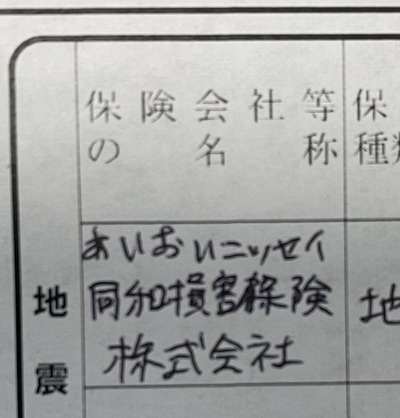 保険会社等
の名称
保
種類
地震
あいおいニッセイ
同和損害保険
株式会社
地